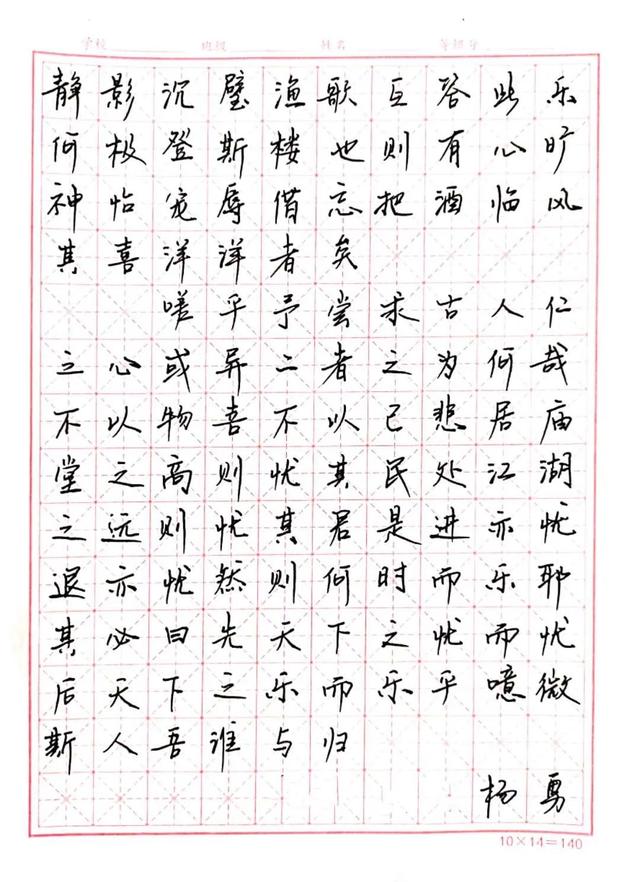 学校 班级 姓名 等级分
静影沉璧渔歌互答此乐
何极登斯楼也则有心旷
神怡宠辱偕忘把酒临风
其喜洋洋者矣
嗟乎予尝求古人仁
之心或异二者之为何哉
不以物喜不以己悲居庙
堂之高则忧其民处江湖
之远则忧其君是进亦忧
退亦忧然则何时而乐耶
其必曰先天下之忧而忧
后天下之乐而乐乎噫微
斯人吾谁与归
杨勇
10×14=140